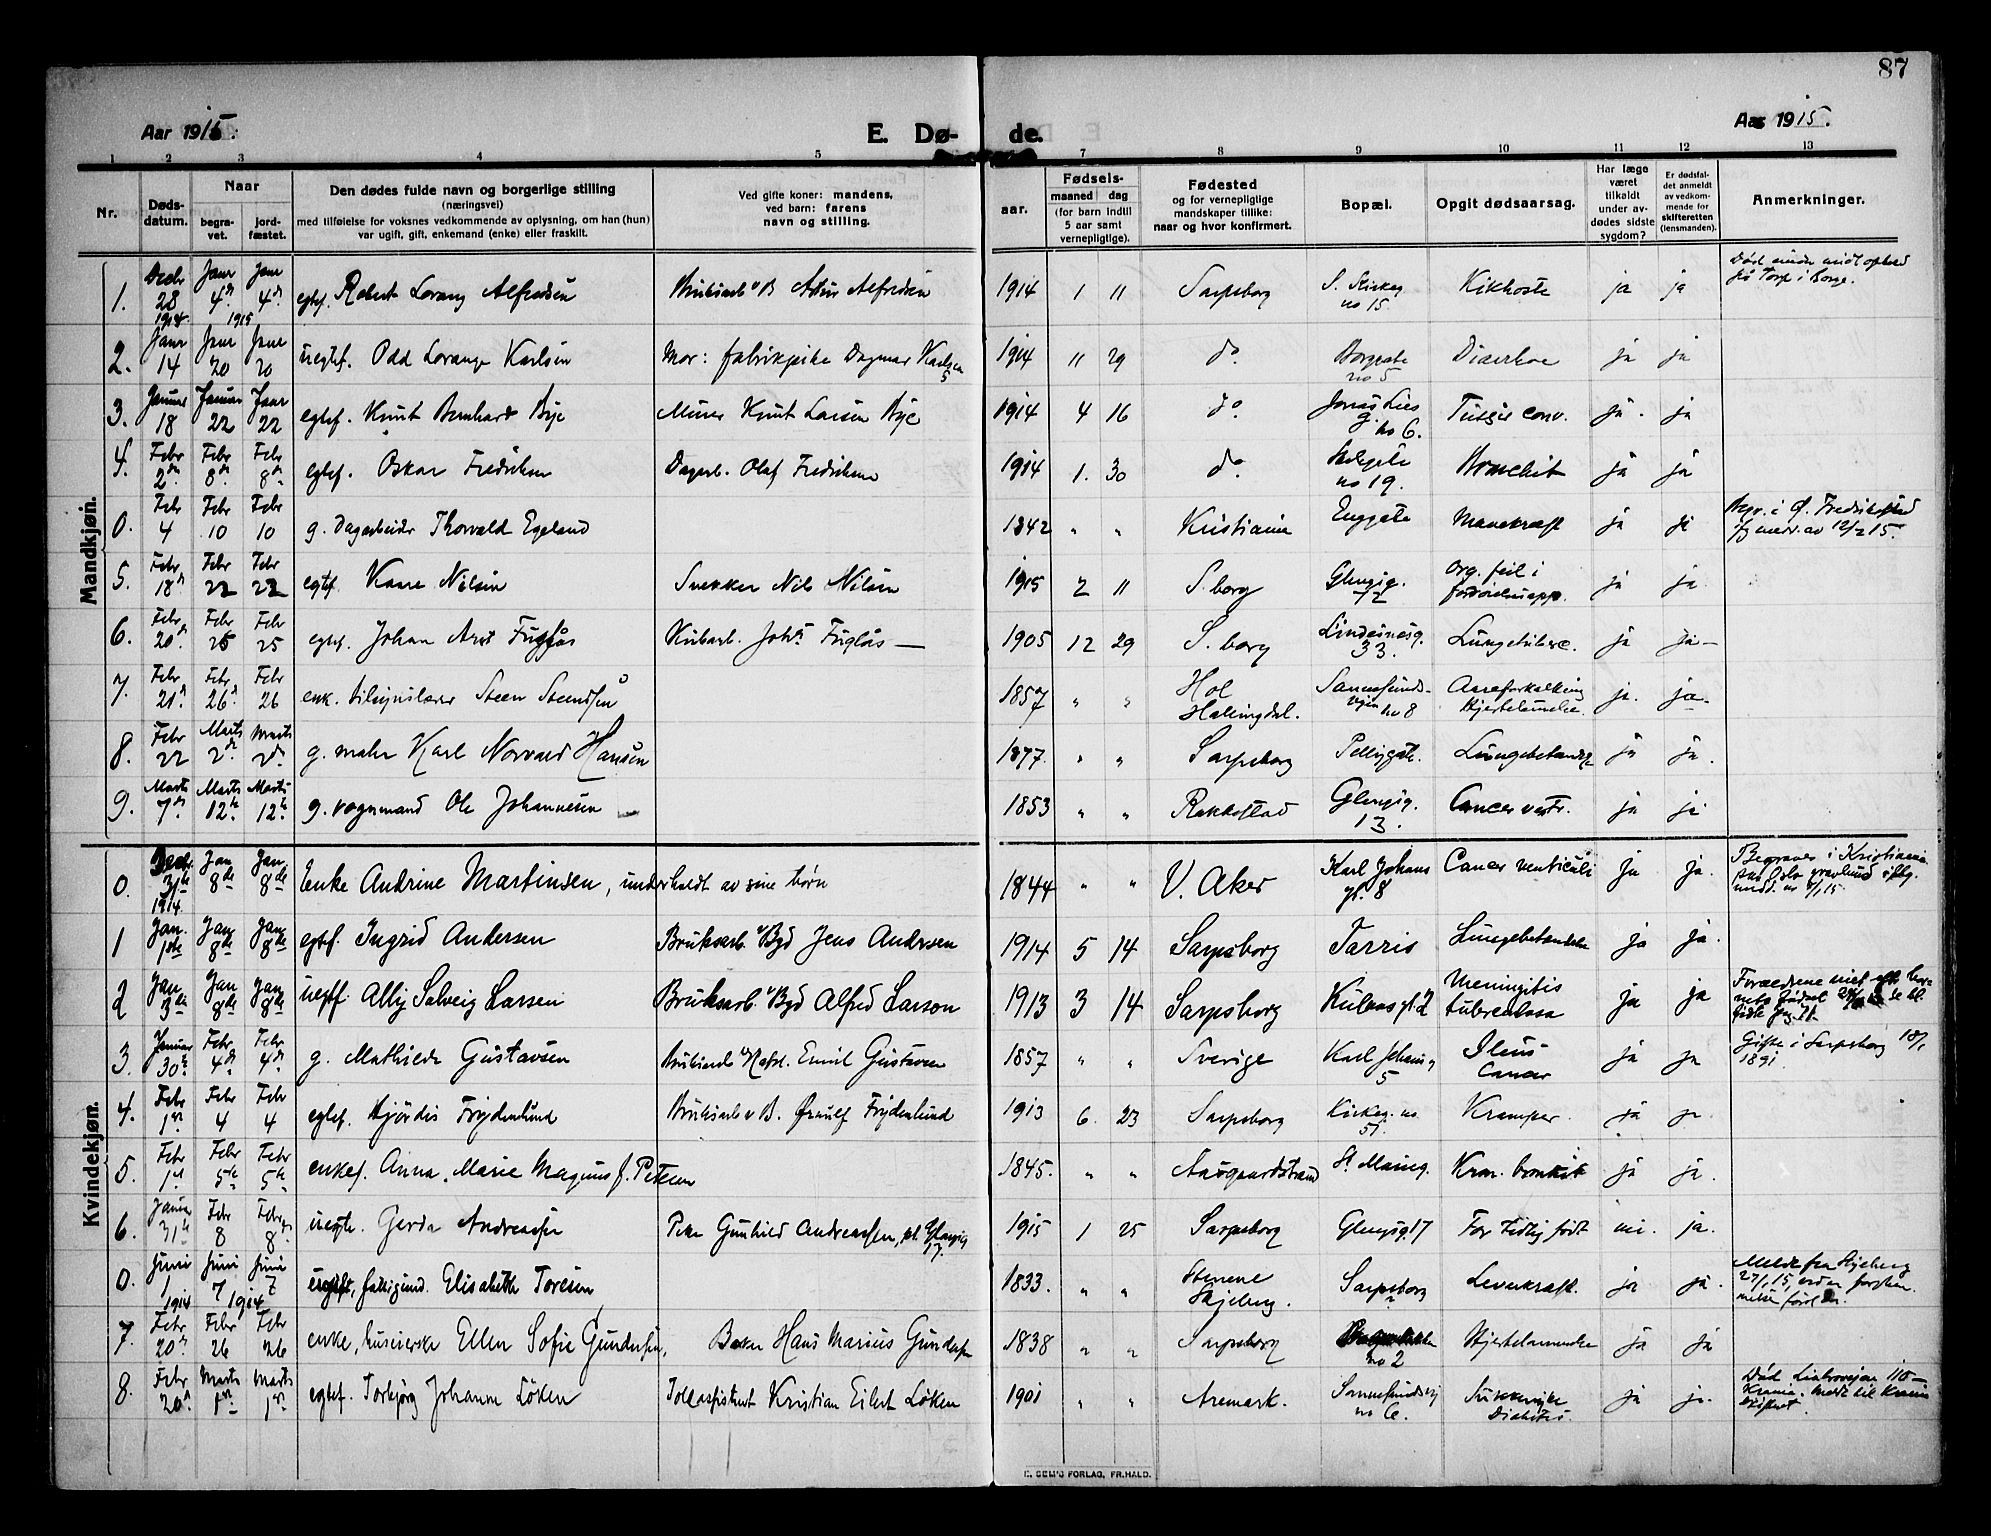 87
Aar 1915.
E. Dø-
de.
Aar 1915.
1 2 3 4 5 7 8 9 10 11 12 13
Nr.
Døds-
datum.
Naar
begra-
vet.
jord-
fæstet.
Den dødes fulde navn og borgerlige stilling
(næringsvei)
med tilføielse for voksnes vedkommende av oplysning, om han (hun)
var ugift, gift, enkemand (enke) eller fraskilt.
Ved gifte koner: mandens,
ved barn: farens
navn og stilling.
aar.
Fødsels-
maaned dag
(for barn indtil
5 aar samt
vernepligtige).
Fødested
og for vernepligtige
mandskaper tillike:
naar og hvor konfirmert.
Bopæl.
Opgit dødsaarsag.
Har læge
været
tilkaldt
under av-
dødes sidste
sygdom?
Er dødsfal-
det anmeldt
av vedkom-
mende for
skifteretten
(lensmanden).
Anmerkninger.
Mandkjøn.
1. Decbr 28 1914 Janr 4de 1915 Janr 4de egtef. Robert Lorang Alfredsen Bruksarb v B Alfredsen 1914 1 11 Sarpsborg S. Kirkeg no 15. Kikhoste ja ja Død under midl ophold på Torp i Borge.
2. Janr 14 Janr 20 Janr 20 uegtef. Odd Lorange Karlsen Mor: fabrikpike Dagmar Karlsen 1914 11 29 do. Borggate no 5 Diaerhoe ja ja
3. Januar 18 Januar 22 Janr 22 egtef. Knut Bernhard Bye Murer Knut Larsen Bye 1914 4 16 do. Jonas Lies g. no 6. Tussis conv. ja. ja
4. Febr 2den Febr 8de Febr 8de egtef. Oskar Fredriksen Dagarb. Olaf Fredriksen 1914 1. 30 do. no 19. Bronchit ja ja
0. Febr 4 Febr 10 Febr 10 g. Dagarbeider Thorvald Egeland 1842 " " Kristiania Enggate Marekraft ja ja Begr. i Ø. Fredrikstad 12/2 15.
5. Febr 18de Febr 22 Febr 22 egtef. Kaare Nilsen Snekker Nils Nilsen 1915 2 11 S.borg Glengsg. 72 Org. feil i fordøielsesapp. ja ja.
6. Febr 20de Febr 25 Febr 25 egtef. Johan Arnt Fuglås Johs Fuglås — 1905 12 29 S.borg Lindesnæsg. 33. Lungetuberc. ja ja —
7. Febr 21de Febr 26de Febr 26 enk. Steen Steendsen 1857 " " Hol Hallingdal. Sannesunds-veien no 8 Aareforkalkning Hjertelamelse. ja. ja
8. Febr 22 Marts 2de Marts 2de g. maler Karl Norvald Hansen 1877. " " Sarpsborg Pellygate. Lungebetændelse ja ja.
9. Marts 7de Marts 12te Marts 12te g. vognmand Ole Johannesen 1853 " " Rakkestad Glengsg. 13. Cancer ventr. ja ja
Kvindekjøn.
0. Decbr. 31te 1914. Jan 8de Jan. 8de Enke Andrine Martinsen, underholdt av sine børn 1844 " " V. Aker Karl Johans gt. 8 Cancer ventriculi ja ja. Begraves i Kristiania
1 Jan. 1ste Jan 8de Jan. 8de egtef. Ingrid Andersen Bruksarb. v Bgd Jens Andersen 1914 5 14 Sarpsborg Tarris Lungebetændelse ja ja.
2 Jan. 3die Jan 8de Jan 8de uegtef. Ally Solveig Larsen Bruksarb. v Bgd Alfred Larson 1913 3 14 Sarpsborg Kulåsgt 2 Meningitis tuberculosa ja ja Forældrene
3. Januar 30te Febr 4de Febr 4de g. Mathilde Gustavsen Bruksarb v Hafsl. Emil Gustavsen 1857 " " Sverige Karl Johansg 5 Ileus Cancer ja ja Gifte i Sarpsborg 18/1 1891.
4. Febr 1ste Febr 4 Febr 4 egtef. Hjørdis Frydenlund Bruksarb v B. Ørnulf Frydenlund 1913 6. 23 Sarpsborg Kirkeg. no 51. Kramper. ja ja
5. Febr 1ste Febr 5te Febr 5te enkef. Anna Marie Magnus f. Petersen 1845. " " Aasgaardstrand St. Marieg. Kron. bronkit ja ja.
6. Januar 31te Febr 8 Febr 8de uegte. Gerda Andreassen Pike Gunhild Andreassen, Glengsg 17. 1915 1 25 Sarpsborg Glengsg. 17 For tidlig født nei. ja.
0. Juni 1 1914 Juni 7 1914 Juni 7 ugift, fattigund. Elisabeth Toresen 1833. " " Stenene Skjeberg. Sarpsborg Levekraft. ja ja. Meldt fra Skjeberg 27/1 15,
7. Febr 20de Febr 26 Febr 26 enke, huseierske Ellen Sofie Gundersen, Baker Hans Marius Gundersen 1838 " " Sarpsborg no 2 Hjertelammelse ja ja
8. Febr 20de Marts 1ste Marts 1ste egtef. Torbjørg Johanne Løken Toldassistent Kristian Eilert Løken 1901 " " Aremark. Sannesundsvg no 6. Sukkersyke Diabetes. ja ja. Død 110 —
E. SEM'S FORLAG, FR.HALD.